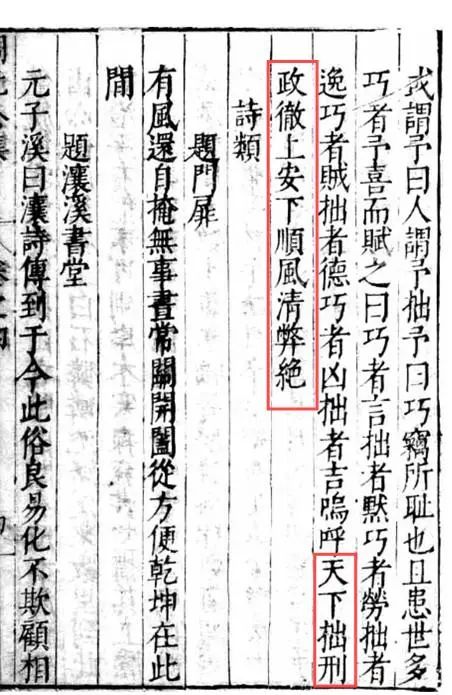 或謂予曰人謂予拙予曰巧竊所耻也且患世多
巧者予喜而賦之曰巧者言拙者默巧者勞拙者
逸巧者賊拙者德巧者凶拙者吉嗚呼天下拙刑
政徹上安下順風清弊絶
詩類
題門扉
有風還自掩無事晝常關開闔從方便乾坤在此
間
題濂溪書堂
元子溪曰瀼詩傳到于今此俗良易化不欺顧相